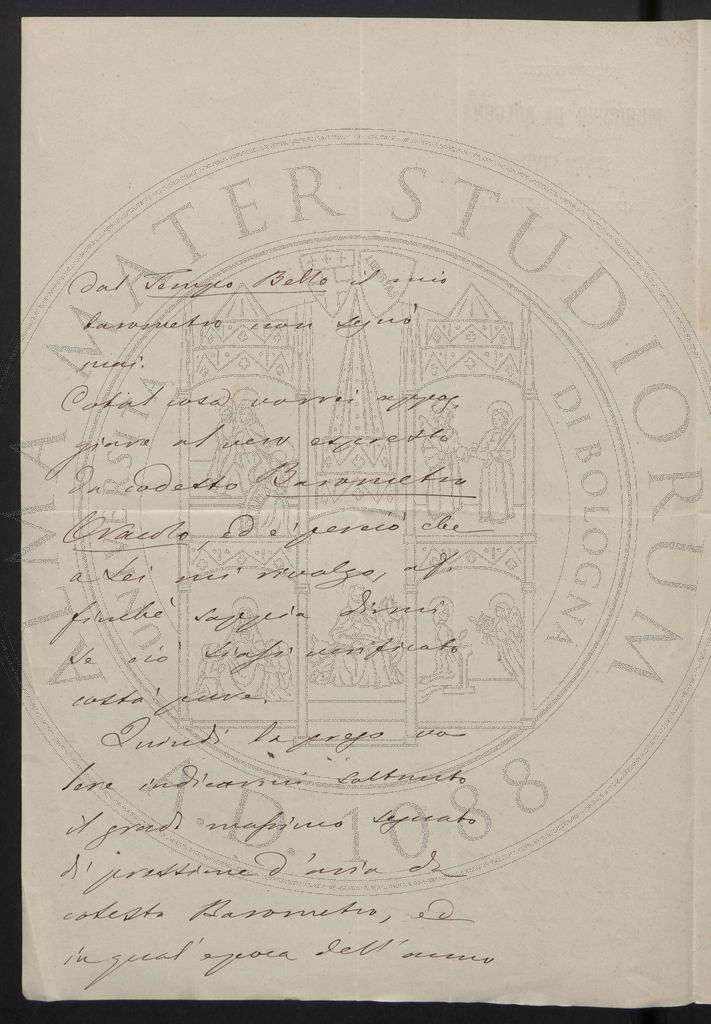 dal Tempo Bello il mio
barometro non segnò
mai.
Cotal cosa vorrei appog
giare al vero espresso
da codesto Barometro
Oracolo, ed e' perciò che
a Lei mi rivolgo, af,
finchè sappia dirmi
se ciò siasi verificato
costà pure.
Quindi la prego vo
lere indicarmi soltanto
il grado massimo segnato
di pressione d'aria da
cotesto Barometro, ed
in qual' epoca dell'anno
ALMA MATER STUDIORUM
UNIVERSITÀ DI BOLOGNA
A.D. 1088
MUNICIPIO DI BOLOGNA